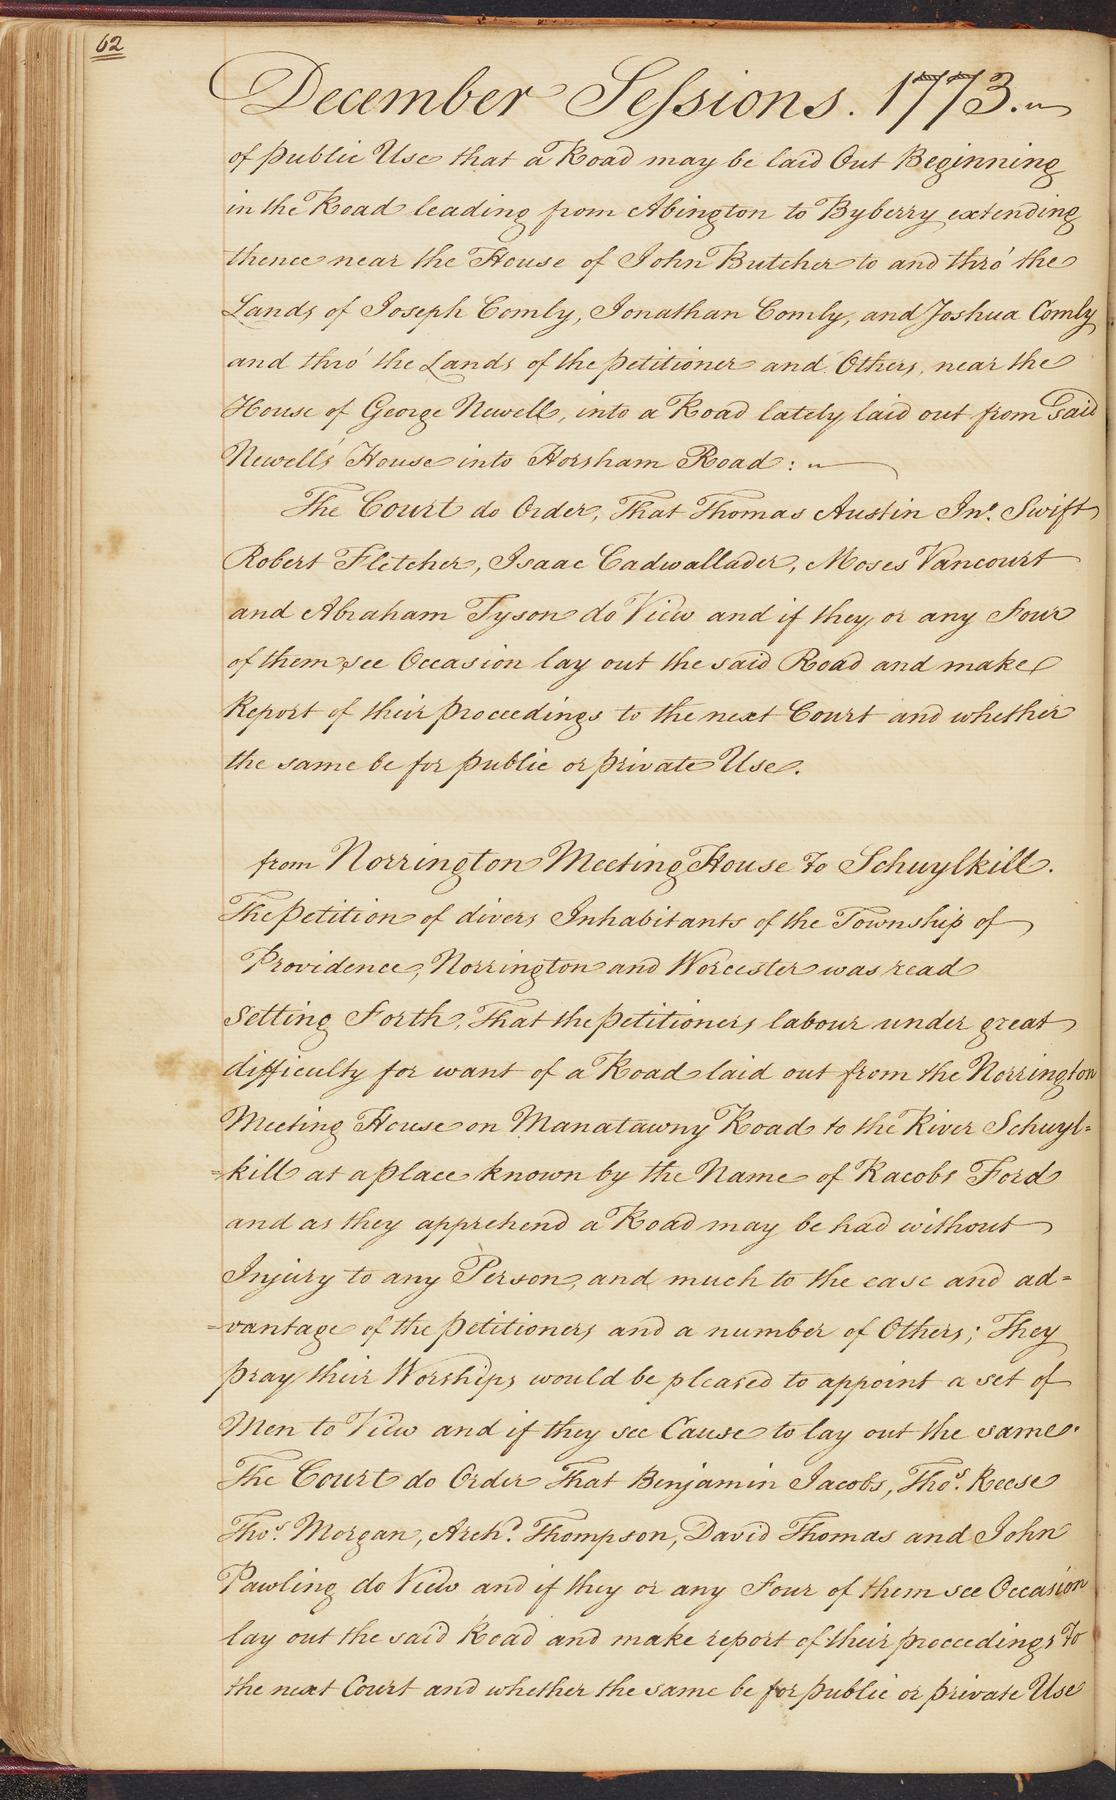 62
December Sessions. 1773.
of public Use that a Road may be laid Out Beginning
in the Road leading from Abington to Byberry extending
thence near the House of John Butcher to and thro' the
Lands of Joseph Comly, Jonathan Comly, and Joshua Comly
and thro' the Lands of the petitioner and Others, near the
House of George Newell, into a Road lately laid out from said
Newell's House into Horsham Road:
The Court do Order, That Thomas Austin Jnr. Swift
Robert Fletcher, Isaac Cadwallader, Moses Vancourt
and Abraham Tyson do View and if they or any Four
of them see Occasion lay out the said Road and make
Report of their proceedings to the next Court and whether
the same be for public or private Use.
from Norrington Meeting House to Schuylkill.
The petition of divers Inhabitants of the Township of
Providence, Norrington and Worcester was read
Setting Forth, That the petitioners labour under great
difficulty for want of a Road laid out from the Norrington
Meeting House on Manatawny Road to the River Schuyl=
=kill at a place known by the Name of Racobs Ford
and as they apprehend a Road may be had without
Injury to any Person, and much to the ease and ad=
=vantage of the petitioners and a number of Others; They
pray their Worships would be pleased to appoint a set of
Men to View and if they see Cause to lay out the same.
The Court do Order That Benjamin Jacobs, Thos. Reese
Thos. Morgan, Archd. Thompson, David Thomas and John
Pawling do View and if they or any Four of them see Occasion
lay out the said Road and make report of their proceedings to
the next Court and whether the same be for public or private Use